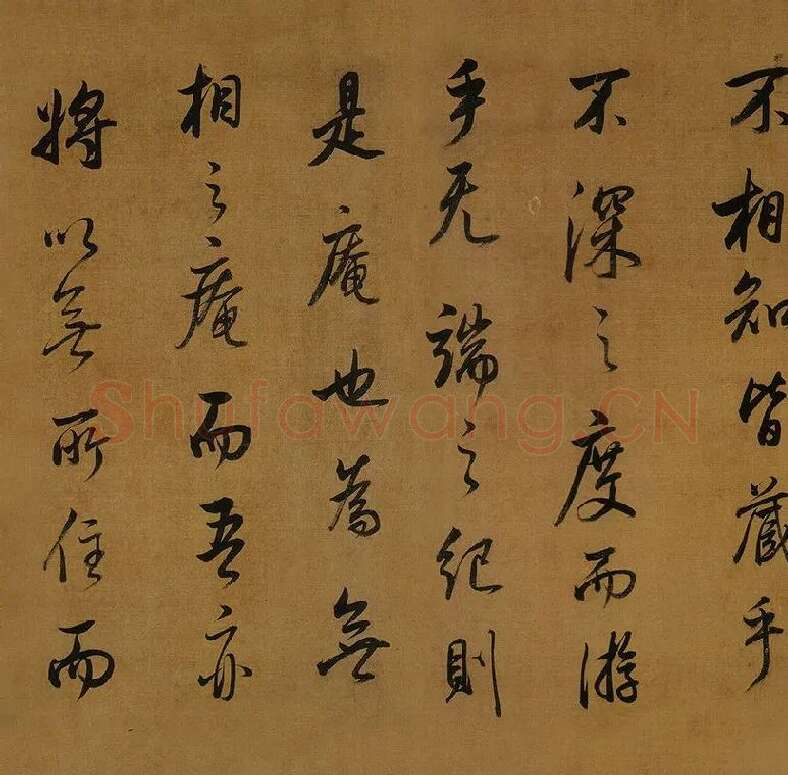 不相知皆藏乎
不深之度而游
乎无端之纪则
是庵也為無
相之庵而吾亦
将以無所住而
Shufawang.CN